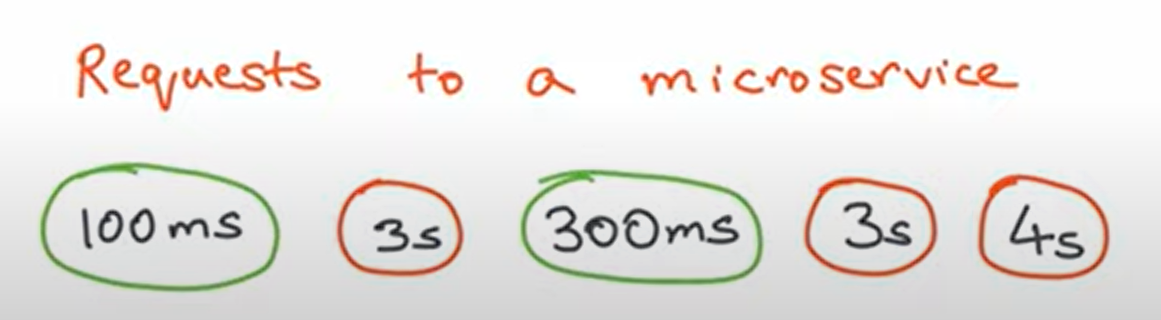 Requests to a microservice
100ms 3s 300ms 3s 4s